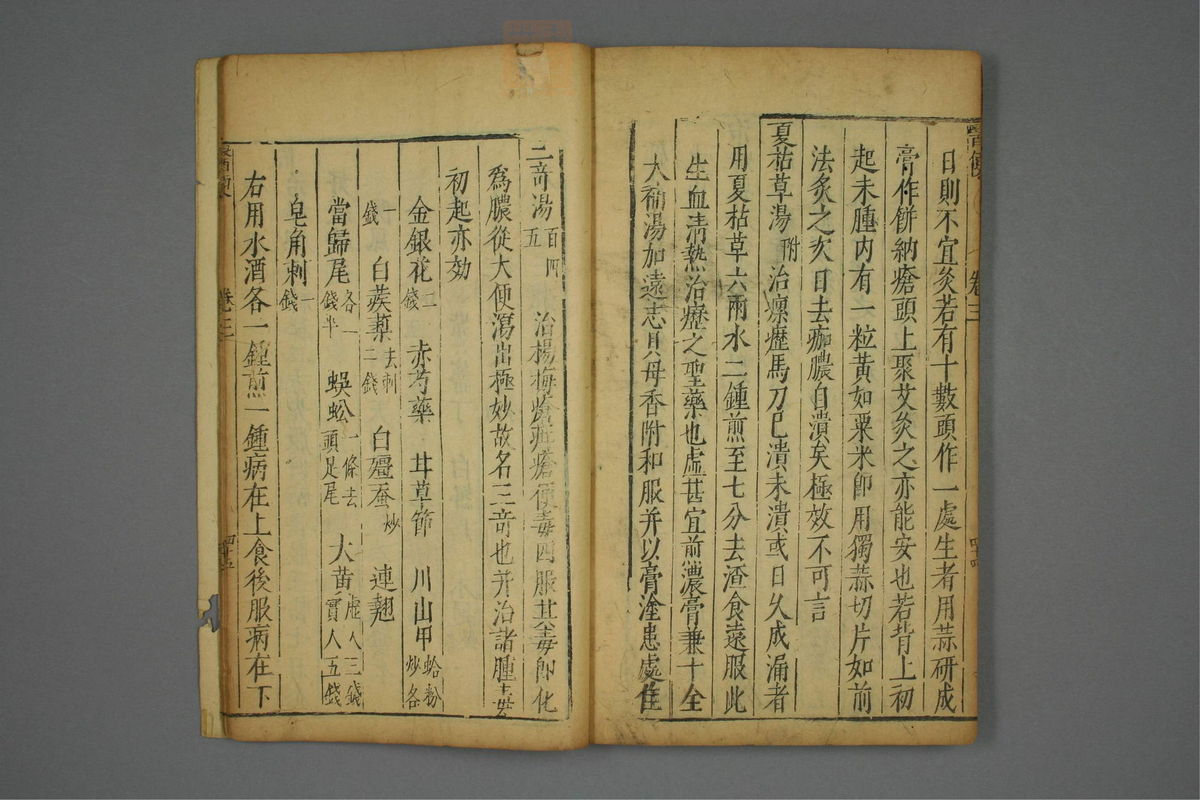 日則不宜灸若有十數頭作一處生者用蒜研成
膏作餅納瘡頭上聚艾灸之亦能安也若背上初
起未腫内有一粒黄如粟米即用獨蒜切片如前
法灸之次日去痂膿自潰矣極效不可言
夏枯草湯 附 治瘰癧馬刀已潰未潰或日久成漏者
用夏枯草六兩水二鍾煎至七分去渣食遠服此
生血清熱治癧之聖藥也虚甚宜煎濃膏兼十全
大補湯加遠志貝母香附和服并以膏塗患處佳
卷三
四十四
三奇湯 百四五 治楊梅瘡疳瘡便毒四服其毒即化
爲膿從大便瀉出極妙故名三奇也并治諸腫毒
初起亦効
金銀花 二錢 赤芍藥 甘草節 川山甲 蛤粉炒各
一錢 白蒺藜 去刺二錢 白殭蚕 炒 連翹
當歸尾 各一錢半 蜈蚣 一條去頭足尾 大黄 虚人三錢實人五錢
皂角刺 一錢
右用水酒各一鍾煎一鍾病在上食後服病在下
卷三
四十五